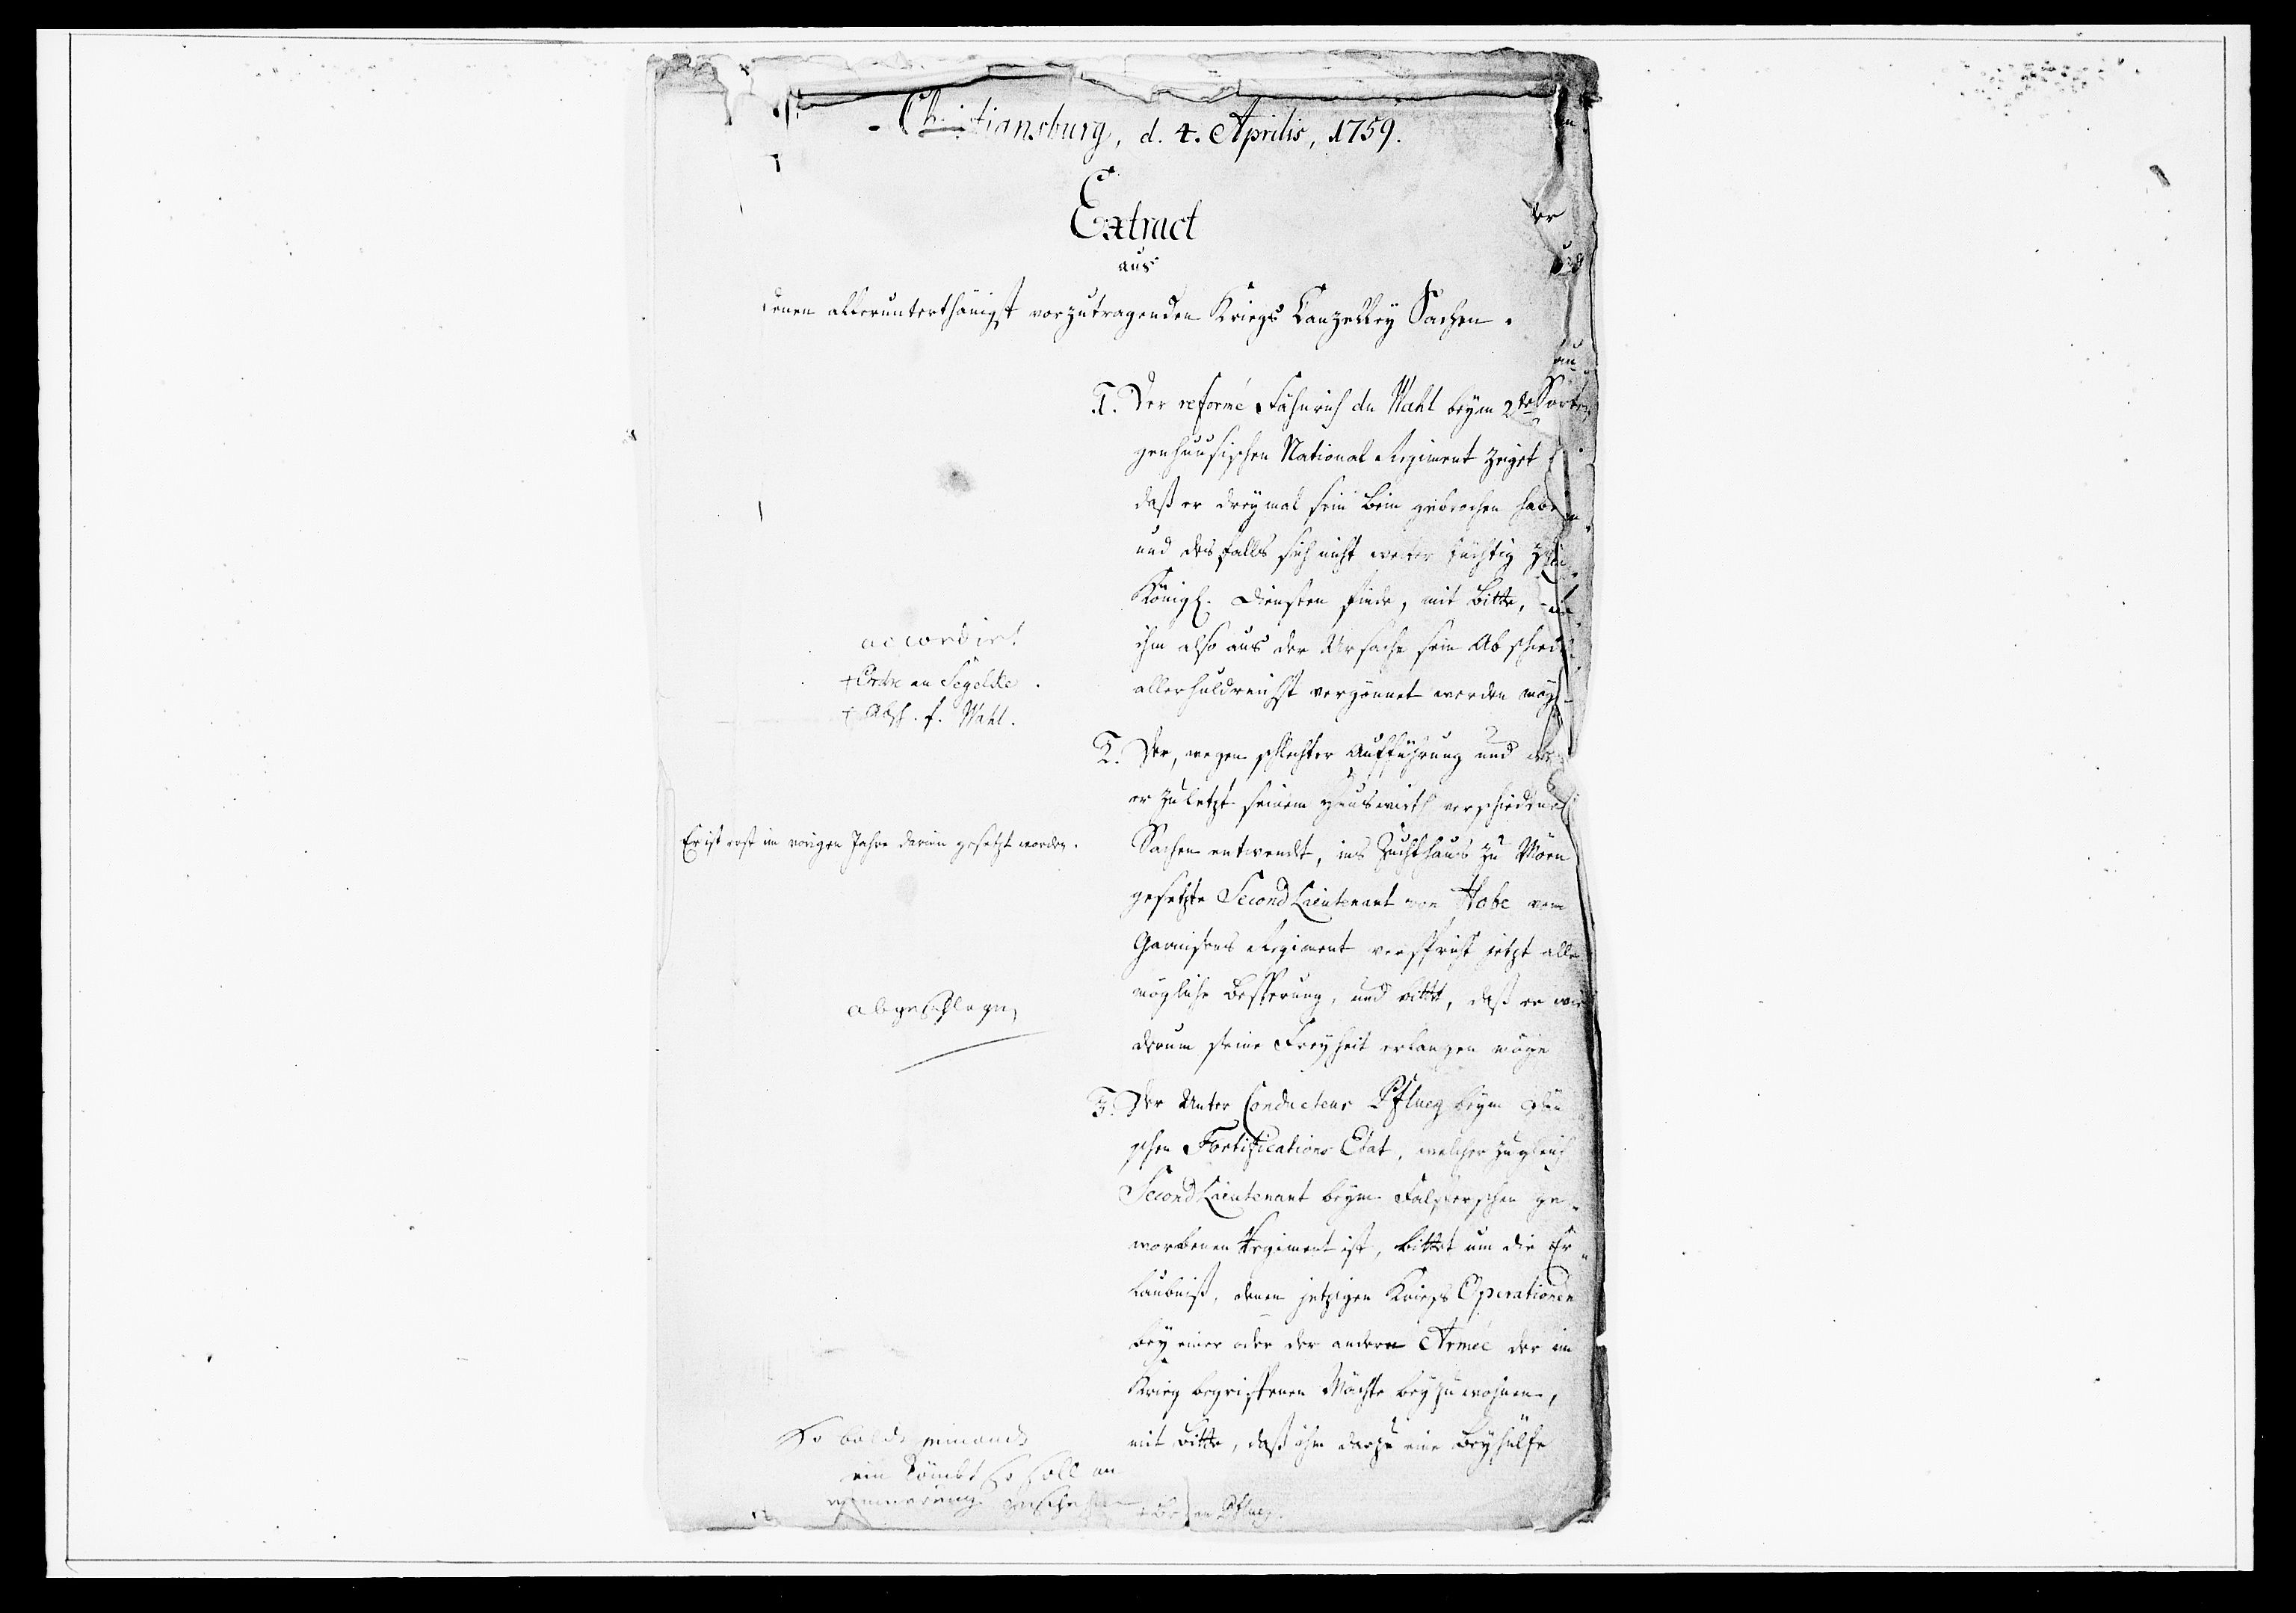 Christiansburg, d. 4. Aprilis, 1759.
Extract
aus
denen allerunterthänigst vorzutragenden Kriegs Canzelley Sachen.
1. Der reformé Fähnrich du Wahl beym 2te
genhuusischen National Regiment zeiget
daß er dreymal sein Bein gebrochen habe
und desfalls sich nicht weiter tüchtig zu
Königl. Diensten finde, mit Bitte,
ihm also aus der Ursache sein Abschied
allerhuldreichst vergönnet werden möge
accordirt
+ Ordre an Segelcke.
+ Absch. f. Wahl.
2. Der, wegen schlechter Aufführung und
er zuletzt seinem Hauswirth verschiedene
Sachen entwendt, ins Zuchthaus zu Möen
gesetzte Second Lieutenant von Hobe vom
Garnisons Regiment verspricht jetzt alle
mögliche Besserung, und bittet, daß er wie
derum seine Freyheit erlangen möge
Er ist erst im vorigen Jahre darin gesetzt worden.
abgeschlagen
3. Der Unter Conducteur Pflueg beym Däni
schen Fortifications Etat, welcher zugleich
Second Lieutenant beym Falsterschen ge-
worbenen Regiment ist, bittet um die Er-
laubniß, denen jetzigen Kriegs Operationen
bey einer oder der andern Armée der im
Krieg begriffenen Mächte beyzuwohnen,
mit Bitte, daß ihm darzu eine Beyhülfe
So balde
ein kömbt so soll
geschehen
an Pflueg.